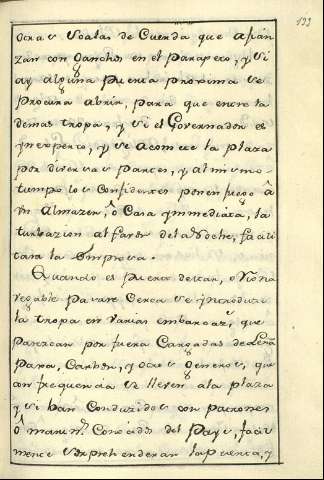 133
otras escalas de Cuerda que afian
zan con Ganchos en el Parapeto, y si
ay alguna Puerta Proxima se
Procura abrir, para que entre la
demas tropa, y si el Governador es
ynexperto, y se acomete la plaza
por diversas Partes, y al mismo
tiempo los Confidentes ponen fuego â
un Almazen, ô Casa ymmediata, la
turbazion al favor de la Noche, facili
tara la Empresa.
Quando es Puerto de mar, o Rio na
vegable Pasare Cerca se yntroduce
la tropa en varias embarcaz.s que
Parezcan por fuera Cargadas de Leña
Para, Carbon, y otros Generos, que
con frequencia se lleven ala plaza
y si ban Conducidos con patrones
ô marin.s Conocidos del Pays, facil
mente sorprehenderan la puerta, y